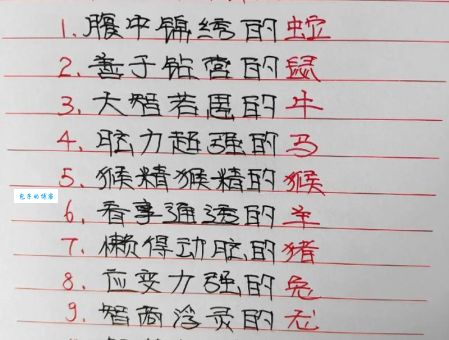 1.腹中锦绣的蛇
2.善于钻营的鼠
3.大智若愚的牛
4.脑力超强的马
5.猴精猴精的猴
6.看事通透的羊
7.懒得动脑的猪
8.应变力强的兔
9.智商浮灵的龙
包子的博客